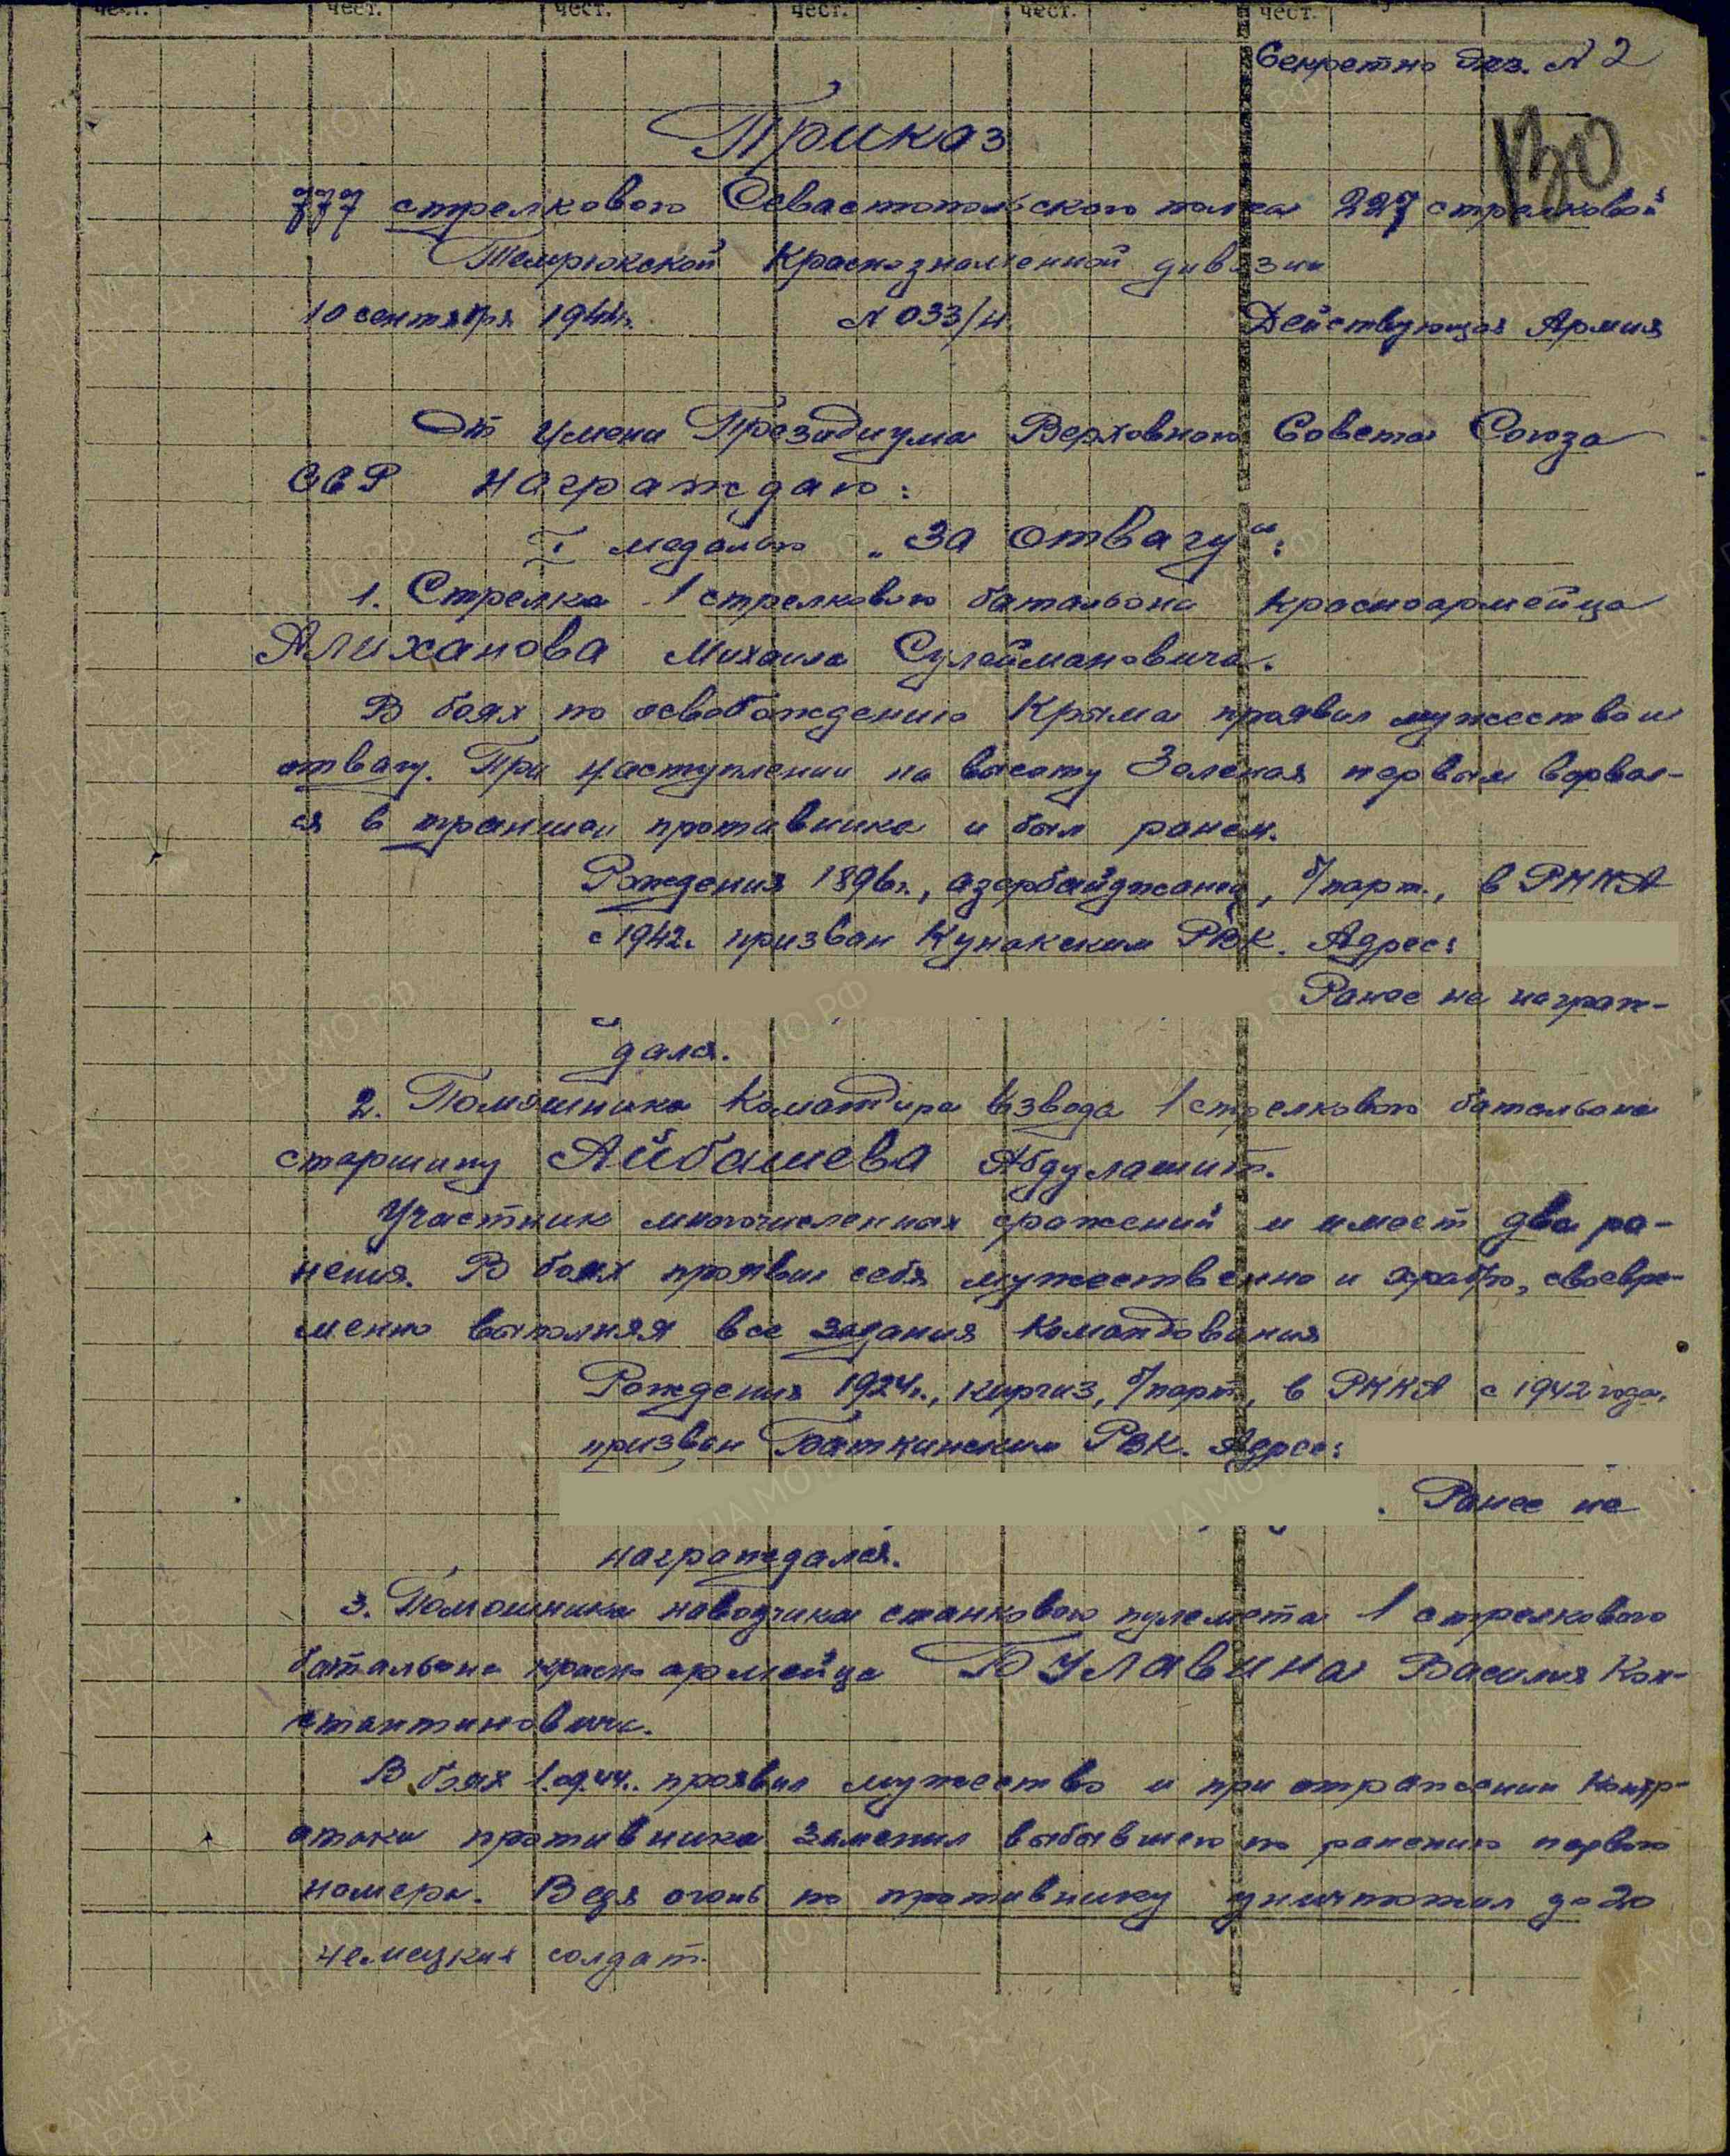 чест. чест. чест. чест. чест. чест.
Секретно Экз. N 2
130
Приказ
777 стрелкового Севастопольского полка 227 стрелковой
Темрюкской Краснознаменной дивизии
10 сентября 1944г. N 033/н Действующая Армия
От имени Президиума Верховного Совета Союза
ССР награждаю:
I медалью „За отвагу“:
1. Стрелка 1 стрелкового батальона красноармейца
Алиханова Михаила Сулеймановича.
В боях по освобождению Крыма проявил мужество и
отвагу. При наступлении на высоту Зеленая первым ворвал-
ся в траншеи противника и был ранен.
Рождения 1896г., азербайджанец, б/парт., в РККА
с 1942г. призван Кунакским РВК. Адрес:
Ранее не награж-
дался.
2. Помошника Командира взвода 1 стрелкового батальона
старшину Айбашева Абдулашит.
Участник многочисленных сражений и имеет два ра-
нения. В боях проявил себя мужественно и храбро, своевре-
менно выполняя все задания Командования
Рождения 1924г., киргиз, б/парт, в РККА с 1942 года,
призван Баткинским РВК. Адрес:
. Ранее не
награждался.
3. Помошника наводчика станкового пулемета 1 стрелкового
батальона красноармейца Булавина Василия Кон-
стантиновича.
В боях 1.09.44г. проявил мужество и при отражении Контр-
атаки противника заменил выбывшего по ранению первого
номера. Ведя огонь по противнику уничтожил до 20
немецких солдат.